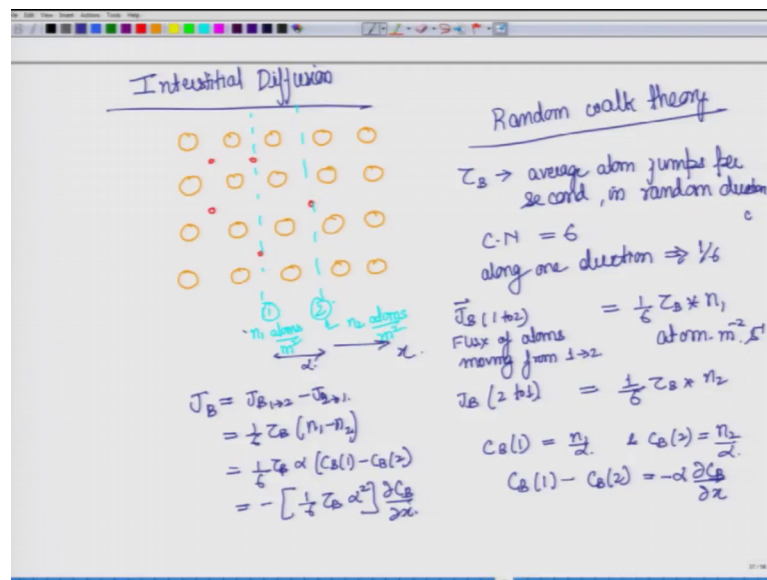 File Edit View Insert Actions Tools Help
Interstitial Diffusion
① ②
n₁ atoms/m² & n₂ atoms/m²
α x
J_B = J_B1→2 - J_B2→1.
= 1/6 τ_B (n₁-n₂)
= 1/6 τ_B α (C_B(1) - C_B(2)
= -[1/6 τ_B α²] ∂C_B/∂x.
Random walk theory
τ_B → average atom jumps per
second, in random direction
C.N = 6
along one direction ⇒ 1/6
J_B (1 to 2) = 1/6 τ_B * n₁
Flux of atoms atom.m⁻² s⁻¹
moving from 1→2
J_B (2 to 1) = 1/6 τ_B * n₂
C_B(1) = n₁/α. & C_B(2) = n₂/α.
C_B(1) - C_B(2) = -α ∂C_B/∂x